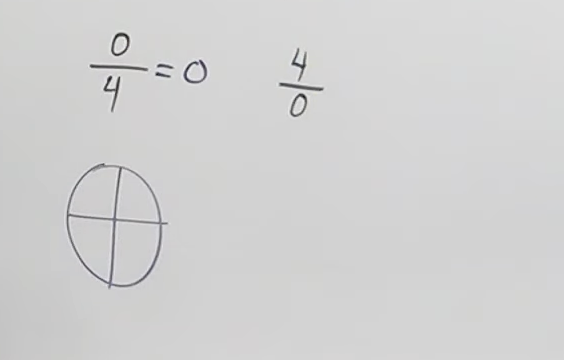 0/4 = 0    4/0